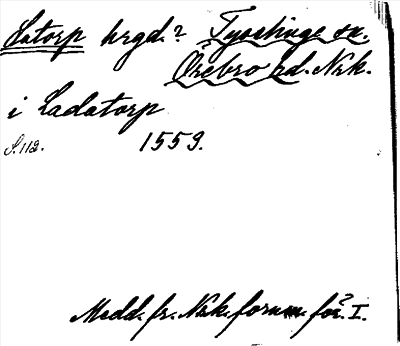 Latorp hrgd.? Tysslinge sn.
Örebro hd. Nrk.
i Ladatorp
S. 112. 1559.
Medd. fr. Nrk. fornm. för. I.